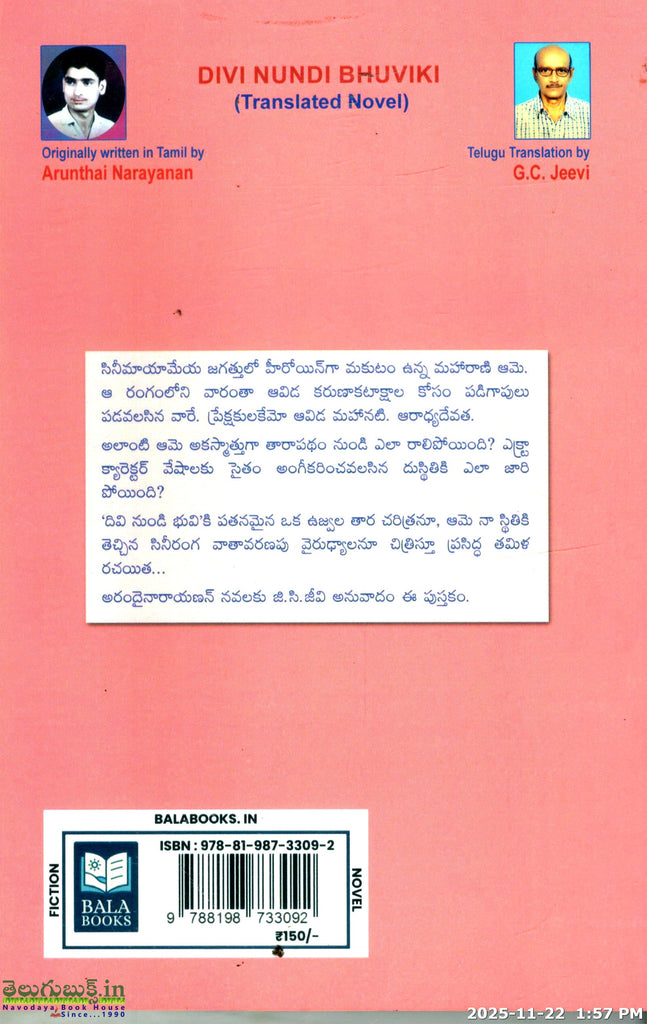 DIVI NUNDI BHUVIKI
(Translated Novel)
Originally written in Tamil by
Arunthai Narayanan
Telugu Translation by
G.C. Jeevi
సినీమాయామేయ జగత్తులో హీరోయిన్‌గా మకుటం ఉన్న మహారాణి ఆమె.
ఆ రంగంలోని వారంతా ఆవిడ కరుణాకటాక్షాల కోసం పడిగాపులు
పడవలసిన వారే. ప్రేక్షకులకేమో ఆవిడ మహానటి. ఆరాధ్యదేవత.
అలాంటి ఆమె అకస్మాత్తుగా తారాపథం నుండి ఎలా రాలిపోయింది? ఎక్ట్రా
క్యారెక్టర్ వేషాలకు సైతం అంగీకరించవలసిన దుస్థితికి ఎలా జారి
పోయింది?
‘దివి నుండి భువి’కి పతనమైన ఒక ఉజ్వల తార చరిత్రనూ, ఆమె నా స్థితికి
తెచ్చిన సినీరంగ వాతావరణపు వైరుధ్యాలనూ చిత్రిస్తూ ప్రసిద్ధ తమిళ
రచయిత...
అరందైనారాయణన్ నవలకు జి.సి.జీవి అనువాదం ఈ పుస్తకం.
BALABOOKS.IN
FICTION
BALA
BOOKS
ISBN : 978-81-987-3309-2
9 788198 733092
₹150/-
NOVEL
తెలుగుబుక్స్.in
Navodaya Book House
Since...1990
2025-11-22 1:57 PM